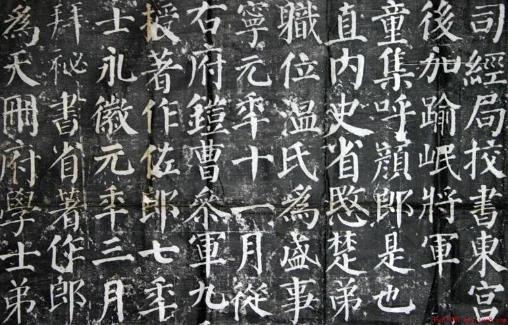 司經局挍書東宮
後加踰岷將軍
童集呼顔郎是也
直内史省愍楚弟
職位温氏爲盛事
寧元年十一月從
右府鎧曹叅軍九
授著作佐郎七年
士永徽元年三月
拜秘書省著作郎
爲天冊府學士弟